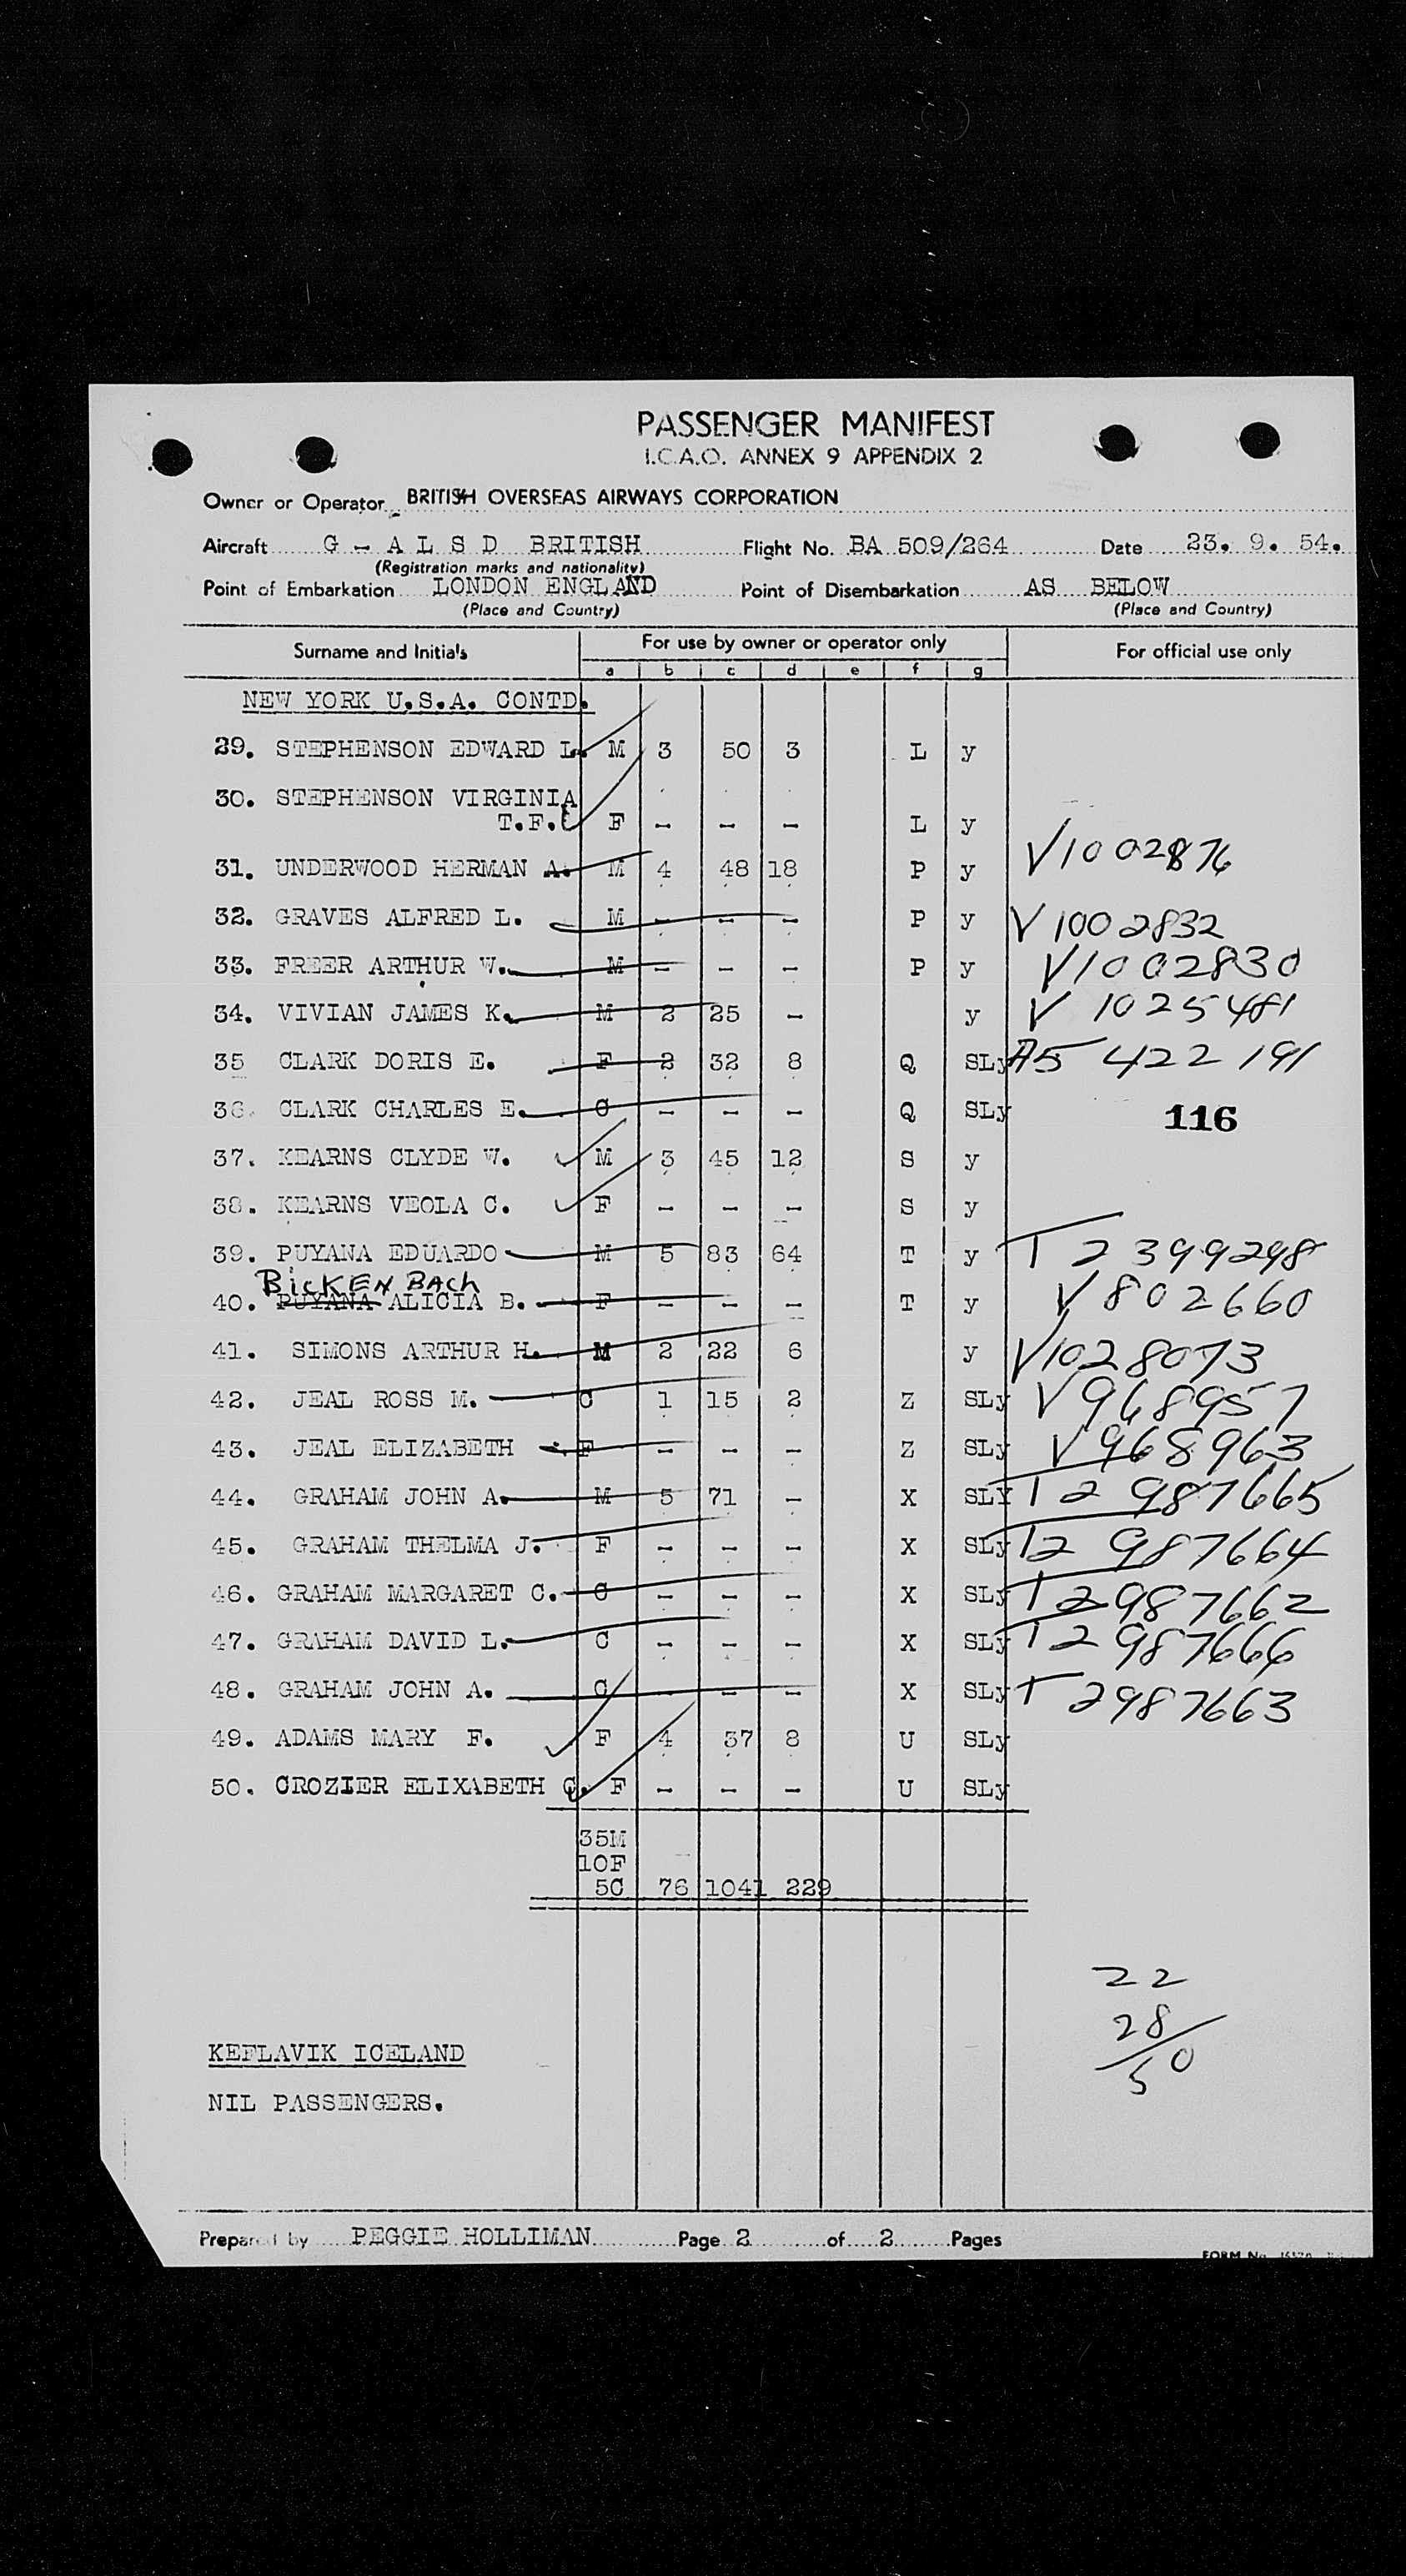 PASSENGER MANIFEST
I.C.A.O. ANNEX 9 APPENDIX 2
Owner or Operator BRITISH OVERSEAS AIRWAYS CORPORATION
Aircraft G - A L S D BRITISH Flight No. BA 509/264 Date 23. 9. 54.
(Registration marks and nationality)
Point of Embarkation LONDON ENGLAND Point of Disembarkation AS BELOW
(Place and Country) (Place and Country)
Surname and Initials For use by owner or operator only For official use only
a b c d e f g
NEW YORK U.S.A. CONTD.
29. STEPHENSON EDWARD L. M 3 50 3 L y
30. STEPHENSON VIRGINIA
T.F. F - - - L y
31. UNDERWOOD HERMAN A. M 4 48 18 P y V1002876
32. GRAVES ALFRED L. M - - - P y V1002832
33. FREER ARTHUR W. M - - - P y V1002830
34. VIVIAN JAMES K. M 2 25 - y V 1025481
35 CLARK DORIS E. F 2 32 8 Q SLy A5 422 191
36. CLARK CHARLES E. C - - - Q SLy 116
37. KEARNS CLYDE W. M 3 45 12 S y
38. KEARNS VEOLA C. F - - - S y
39. PUYANA EDUARDO M 5 83 64 T y T 2 399298
BICKENBACH
40. PUYANA ALICIA B. F - - - T y V 802660
41. SIMONS ARTHUR H. M 2 22 6 y V1028073
42. JEAL ROSS M. C 1 15 2 Z SLy V968957
43. JEAL ELIZABETH F - - - Z SLy V968963
44. GRAHAM JOHN A. M 5 71 - X SLY T2 987665
45. GRAHAM THELMA J. F - - - X SLy T2 987664
46. GRAHAM MARGARET C. C - - - X SLy T2987662
47. GRAHAM DAVID L. C - - - X SLy T2 987666
48. GRAHAM JOHN A. C - - - X SLy T 2987663
49. ADAMS MARY F. F 4 37 8 U SLy
50. CROZIER ELIXABETH G. F - - - U SLy
35M
10F
5C 76 1041 229
22
28
50
KEFLAVIK ICELAND
NIL PASSENGERS.
Prepared by PEGGIE HOLLIMAN Page 2 of 2 Pages
FORM No.